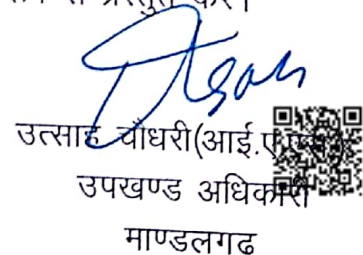 प्रस्तुत करें।
उत्साह चौधरी(आई.ए
उपखण्ड अधिकारी
माण्डलगढ